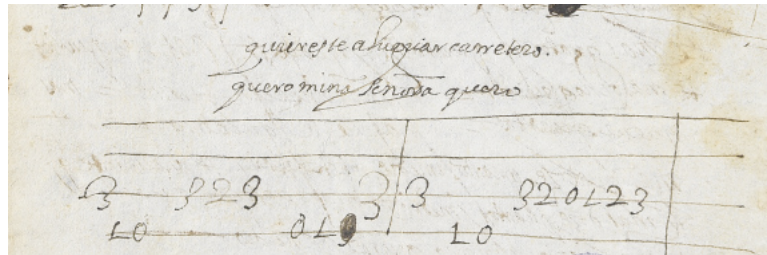 quiereste alugviar carretero.
quero mina señora quero
3 3 2 3 3 3 3 2 0 1 2 3
1 0 0 1 1 0